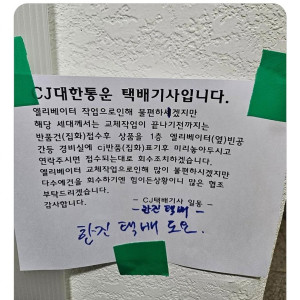 CJ대한통운 택배기사입니다.
엘리베이터 작업으로인해 불편하시겠지만
해당 세대께서는 교체작업이 끝나기전까지는
반품건(집화)접수후 상품을 1층 엘리베이터(옆)빈공
간등 경비실에 cj반품(집화)표기후 미리놓아두시고
연락주시면 접수되는대로 회수조치하겠습니다.
엘리베이터 교체작업으로인해 많이 불편하시겠지만
다수에건을 회수하기엔 힘이든상황이니 많은 협조
부탁드리겠습니다.
감사합니다.
- CJ택배기사 일동 -
-한진택배-
한진 택배 도요.